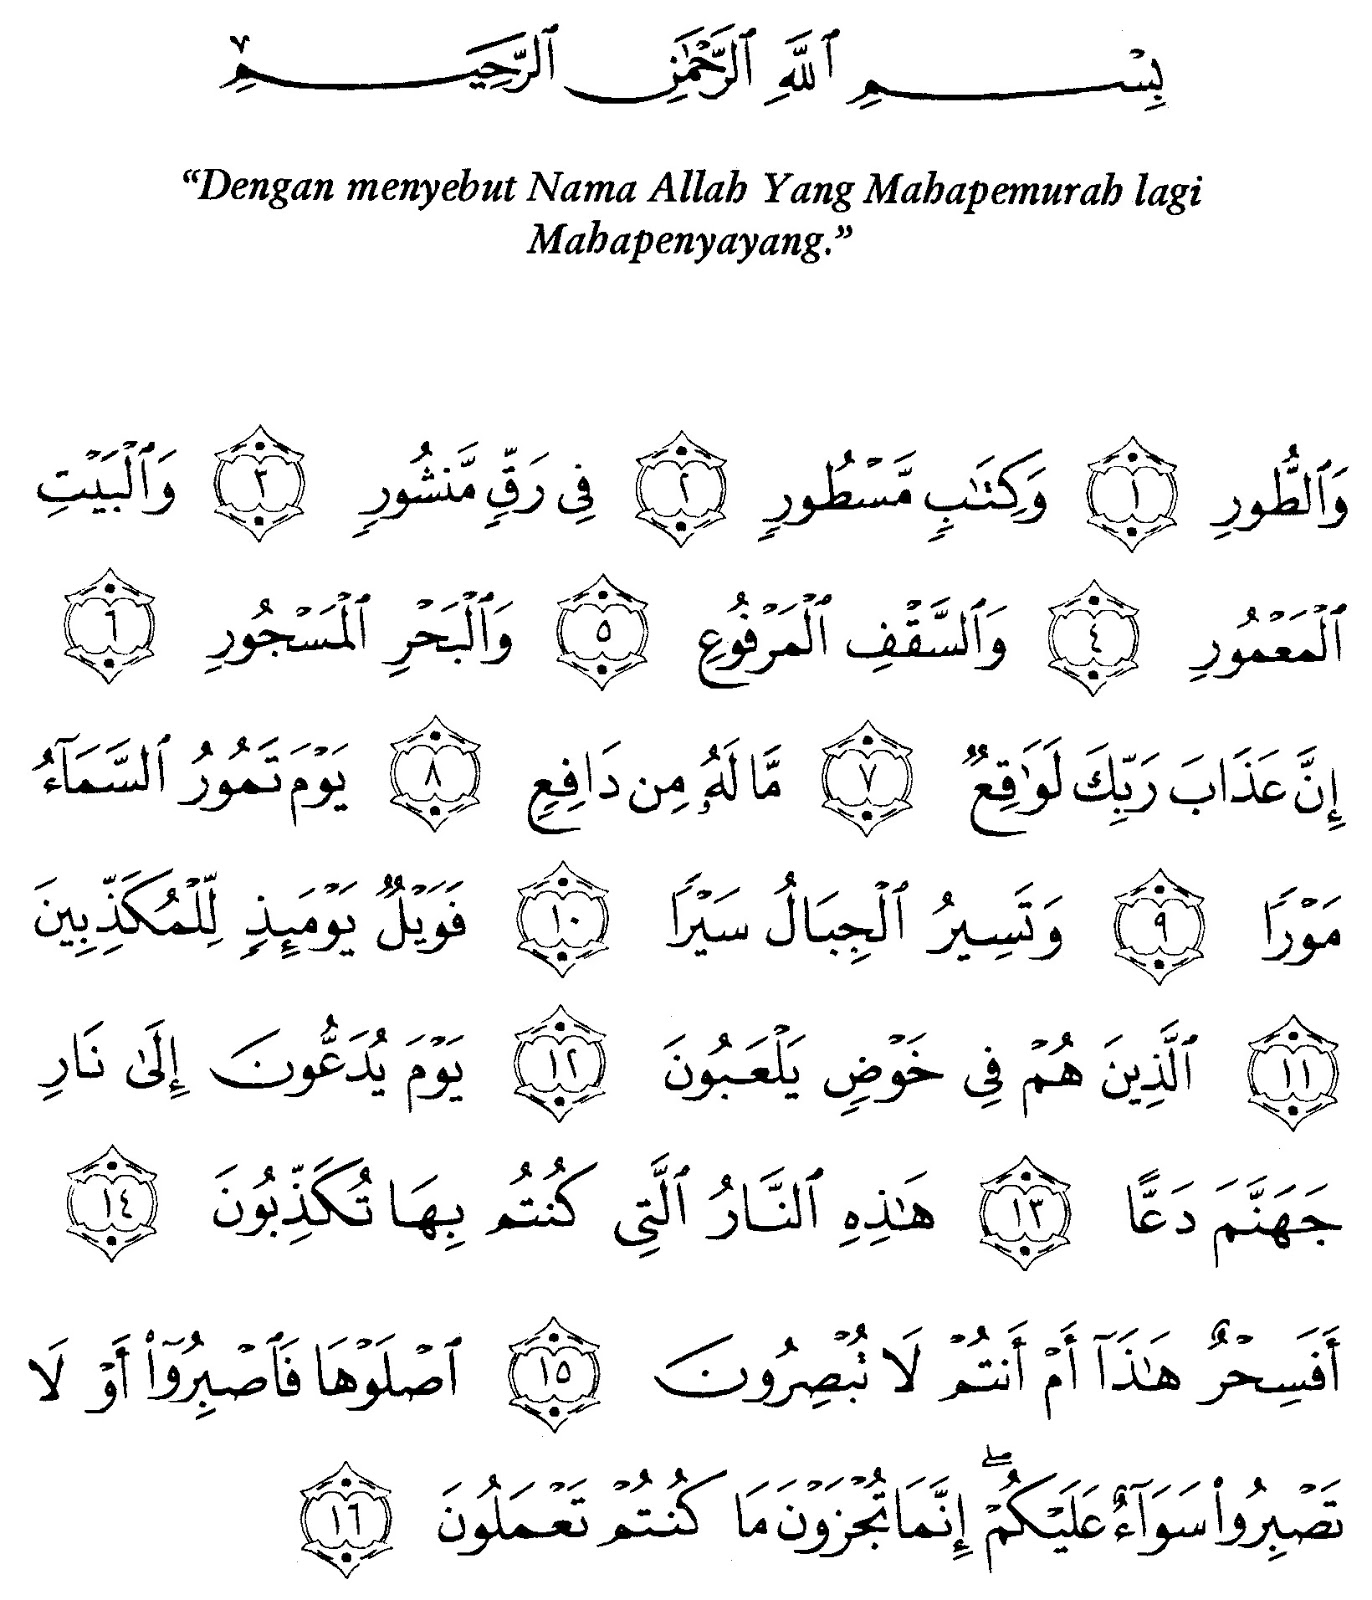 بِسْمِ ٱللَّهِ ٱلرَّحْمَٰنِ ٱلرَّحِيمِ
“Dengan menyebut Nama Allah Yang Mahapemurah lagi
Mahapenyayang.”
وَٱلطُّورِ ١ وَكِتَٰبٍ مَّسْطُورٍ ٢ فِى رَقٍّ مَّنشُورٍ ٣ وَٱلْبَيْتِ
ٱلْمَعْمُورِ ٤ وَٱلسَّقْفِ ٱلْمَرْفُوعِ ٥ وَٱلْبَحْرِ ٱلْمَسْجُورِ ٦
إِنَّ عَذَابَ رَبِّكَ لَوَٰقِعٌ ٧ مَّا لَهُۥ مِن دَافِعٍ ٨ يَوْمَ تَمُورُ ٱلسَّمَآءُ
مَوْرًا ٩ وَتَسِيرُ ٱلْجِبَالُ سَيْرًا ١٠ فَوَيْلٌ يَوْمَئِذٍ لِّلْمُكَذِّبِينَ
١١ ٱلَّذِينَ هُمْ فِى خَوْضٍ يَلْعَبُونَ ١٢ يَوْمَ يُدَعُّونَ إِلَىٰ نَارِ
جَهَنَّمَ دَعًّا ١٣ هَٰذِهِ ٱلنَّارُ ٱلَّتِى كُنتُم بِهَا تُكَذِّبُونَ ١٤
أَفَسِحْرٌ هَٰذَآ أَمْ أَنتُمْ لَا تُبْصِرُونَ ١٥ ٱصْلَوْهَا فَٱصْبِرُوٓا۟ أَوْ لَا
تَصْبِرُوا۟ سَوَآءٌ عَلَيْكُمْ ۖ إِنَّمَا تُجْزَوْنَ مَا كُنتُمْ تَعْمَلُونَ ١٦